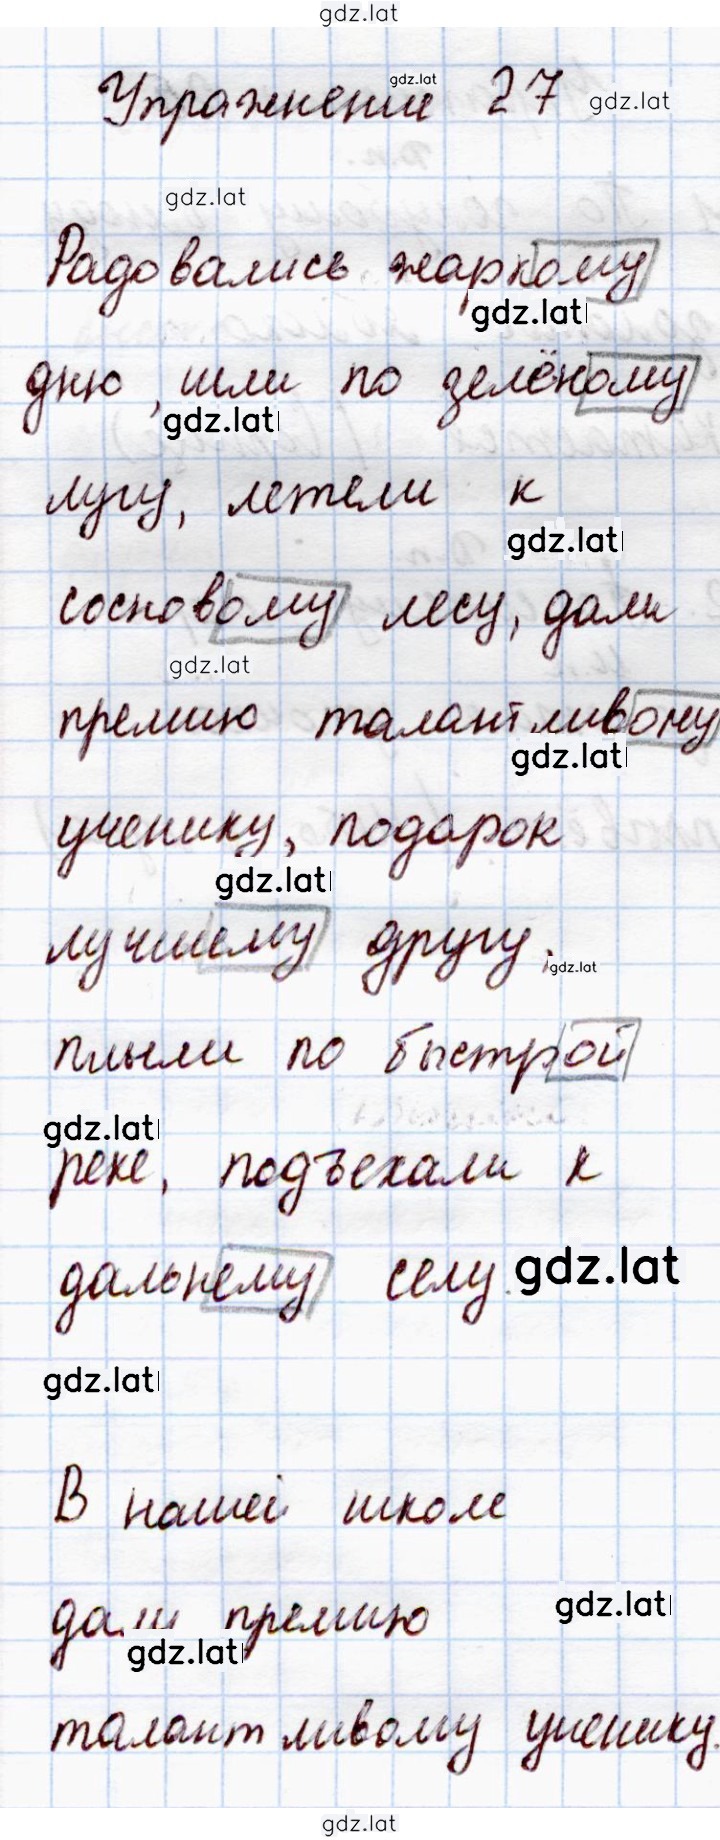 gdz.lat
Упражнение 27
gdz.lat
gdz.lat
gdz.lat
Радовались жаркому
gdz.lat
дню, шли по зелёному
gdz.lat
лугу, летели к
gdz.lat
сосновому лесу, дали
gdz.lat
премию талантливому
gdz.lat
ученику, подарок
gdz.lat
лучшему другу,
gdz.lat
плыли по быстрой
gdz.lat
реке, подъехали к
дальнему селу.
gdz.lat
gdz.lat
В нашей школе
дали премию
gdz.lat
gdz.lat
талантливому ученику.
gdz.lat